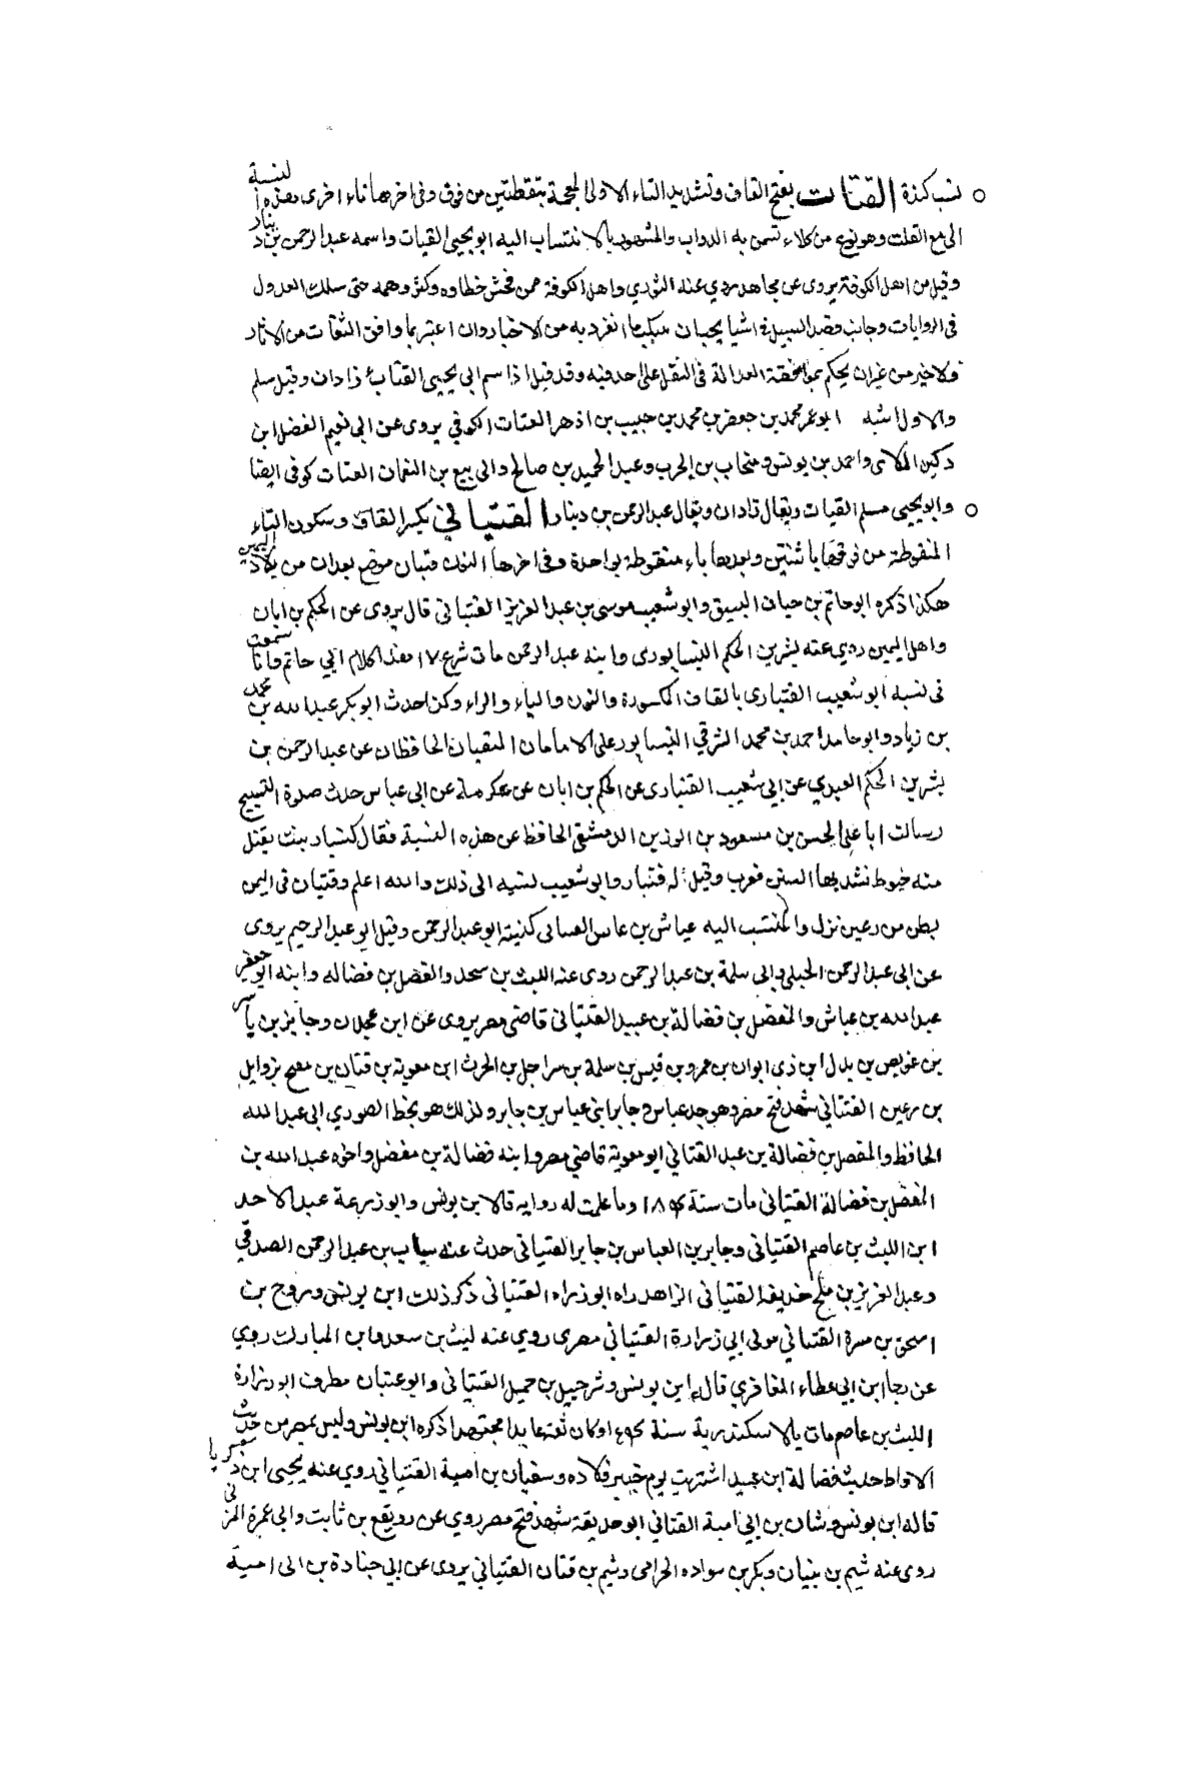 نسب كندة القتات بفتح القاف وتشديد التاء الاولى المعجمة بنقطتين من فوق وفى اخرها تاء اخرى هذه النسبة
الى بيع القت وهو نوع من كلاء تسمن به الدواب والمشهور بالانتساب اليه ابو يحيى القتات واسمه عبد الرحمن بن دينار
وقيل من اهل الكوفة يروى عن مجاهد روى عنه الثوري واهل الكوفة ممن فحش خطاوه وكثر وهمه حتى سلك العدول
فى الروايات وجانب قصد السبيل فى اشيا يجب ان ما انفرد به من الاخبار وان اعتبر بما وافق الثقات من الاثار
فلا خير من غيران يحكم العدالة فى النقل على احد فيه وقد قيل اذا اسم ابى يحيى القتات زاذان وقيل سلم
والاول اشبه ابو عمر محمد بن جعفر بن محمد بن حبيب بن ازهر القتات الكوفي يروى عن ابى نعيم الفضل ابن
دكين الملاى واحمد بن يونس ومنجاب بن الحرث وعبد الحميد بن صالح والربيع بن النعمان القتات كوفى ايضا
وابو يحيى مسلم القتات ويقال زادان ويقال عبد الرحمن بن دينار القتباني بكسر القاف وسكون التاء
المنقوطة من فوقها باثنتين وبعدها باء منقوطة بواحدة وفى اخرها النون قتبان موضع بعدان من بلاد اليمن
هكذا ذكره ابو حاتم بن حبان البستي وابو شعيب موسى بن عبد العزيز القتبانى قال يروى عن الحكم بن ابان
واهل اليمن روي عنه بشر بن الحكم النيسابورى وابنه عبد الرحمن مات هذا كلام ابي حاتم وانا سمعت
فى نسبة ابو شعيب القنبارى بالقاف المكسورة والنون والباء والراء وكذا حدث ابو بكر عبد الله بن محمد
بن زياد وابو حامد احمد بن محمد الشرقي النيسابور على الامامان المتقيان الحافظان عن عبد الرحمن بن
بشر بن الحكم العبدي عن ابي شعيب القنبارى عن الحكم بن ابان عن عكرمة عن ابن عباس حديث صلوة التسبيح
وسالت ابا على الحسن بن مسعود بن الوزير الدمشقي الحافظ عن هذه النسبة فقال كنبار بنت يفتل
منه خيوط تشد بها السفن فعرب وقيل له قنبار وابو شعيب نسب الى ذلك والله اعلم وقتبان فى اليمن
بطن من رعين نزل والمنتسب اليه عياش بن عباس القتبانى كنيته ابو عبد الرحمن وقيل ابو عبد الرحيم يروى
عن ابى عبد الرحمن الحبلى وابى سلمة بن عبد الرحمن روى عنه الليث بن سعد والفضل بن فضاله وابنه ابو جعفر
عبد الله بن عياش والمفضل بن فضالة بن عبيد القتبانى قاضى مصر يروى عن ابن عجلان وجابر بن ياسر
بن عويص بن بدل ابن ذى ايوان بن عمرو بن قيس بن سلمة بن سراحل بن الحرث ابن معوية بن قتبان بن مصبح بن وايل
بن رعين القتباني شهد فتح مصر وهو جد عياش وجابر ابنى عياش بن جابر وكذلك هو بخط الصوري ابى عبد الله
الحافظ والمفضل بن فضالة بن عبيد القتباني ابو معوية قاضي مصر وابنه فضالة بن مفضل واخوه عبد الله بن
المفضل بن فضالة القتبانى مات سنة وما علمت له رواية قال ابن يونس وابو زرعة عبد الاحد
ابن الليث بن عاصم القتبانى وجابر بن العباس بن جابر القتبانى حدث عنه بن عبد الرحمن الصدفي
وعبد العزيز بن خديفة القتبانى الزاهد القتبانى ذكر ذلك ابن يونس وروح بن
اسحق بن القتباني مولى ابي زرارة القتباني مصرى روي عنه ليث بن سعد وابن المبارك روي
عن رجا ابن ابي عطاء المعافري قاله ابن يونس وشرحبيل بن حميل القتبانى وابو عتبان مطرف ابو زرارة
الليث بن عاصم مات بالاسكندرية سنة وكان ثقة عابدا مجتهدا ذكره ابن يونس وليس بمصر من حديث
حديث فضالة ابن عبيد اشتريت يوم خيبر قلاده وسفيان بن امية القتباني روي عنه يحيى ابن
قاله ابن يونس بن ابي امية القتباني ابو حديقة شهد فتح مصر روي عن رويفع بن ثابت وابى عمرة المزنى
روى عنه شيم بن بيتان وبكر بن سواده الجزامى وشيم بن القتباني يروى عن ابي جنادة بن ابى امية